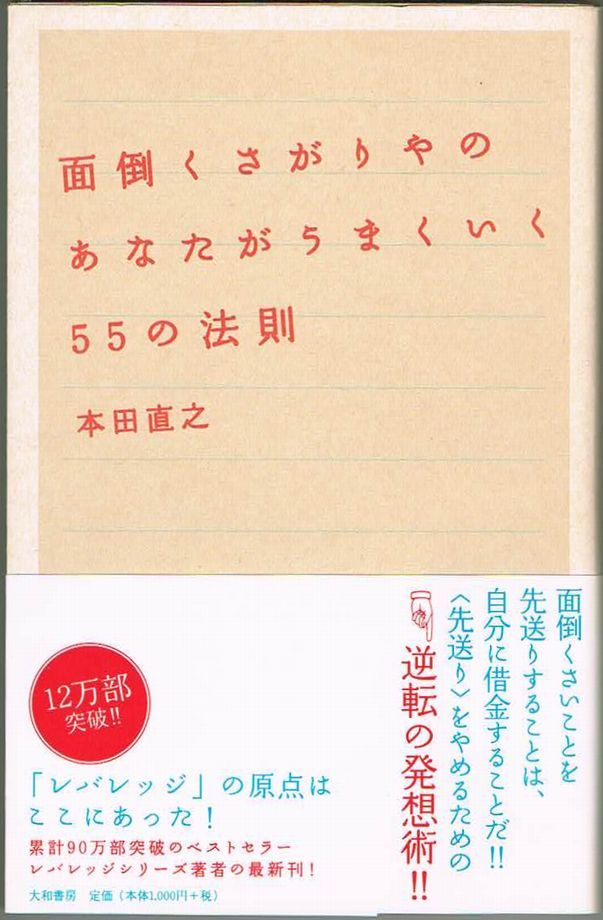 面倒くさがりやの
あなたがうまくいく
55の法則
本田直之
面倒くさいことを
先送りすることは、
自分に借金することだ!!
〈先送り〉をやめるための
逆転の発想術!!
12万部
突破!!
「レバレッジ」の原点は
ここにあった！
累計90万部突破のベストセラー
レバレッジシリーズ著者の最新刊！
大和書房　定価（本体1,000円＋税）